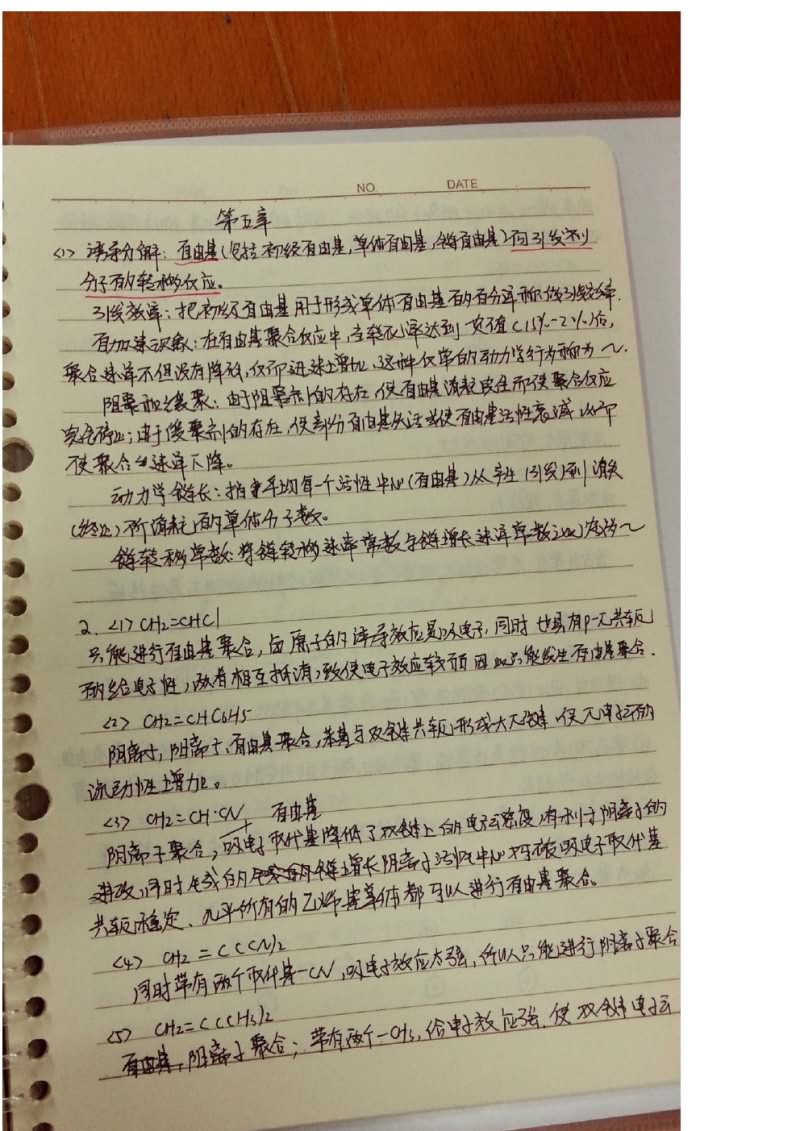 NO. DATE
第五章
<1> 诱导分解：自由基(包括初级自由基,单体自由基,链自由基)向引发剂
分子的转移反应。
引发效率：把初级自由基用于形成单体自由基的百分率称做引发效率.
自加速效应：在自由基聚合反应中,当转化率达到一定值(15%-20%)后,
聚合速率不但没有降低,反而迅速增加,这种反常的动力学行为称为~.
阻聚和缓聚：由于阻聚剂的存在,使自由基消耗完全而使聚合反应
完全停止;由于缓聚剂的存在,使部分自由基失活或使自由基活性衰减从而
使聚合速率下降。
动力学链长：指平均每一个活性中心(自由基)从产生(引发)到消失
(终止)所消耗的单体分子数。
链转移常数：将链转移速率常数与链增长速率常数之比定为~
2. <1> CH2=CHCl
只能进行自由基聚合,卤原子的诱导效应是吸电子,同时也具有p-π共轭
的给电子性,两者相互抵消,致使电子效应较弱因此只能发生自由基聚合.
<2> CH2=CHC6H5
阳离子,阴离子,自由基聚合,苯基与双键共轭,形成大π键,使π电子云的
流动性增加。
<3> CH2=CH·CN 自由基
阴离子聚合,吸电子取代基降低了双键上的电子云密度,有利于阴离子的
进攻,同时生成的链增长阴离子活性中心可被吸电子取代基
共轭稳定、几乎所有的乙烯基单体都可以进行自由基聚合。
<4> CH2=C(CN)2
同时带有两个取代基-CN,吸电子效应太强,所以只能进行阴离子聚合
<5> CH2=C(CH3)2
自由基,阳离子聚合;带有两个-CH3,给电子效应强,使双键电子云